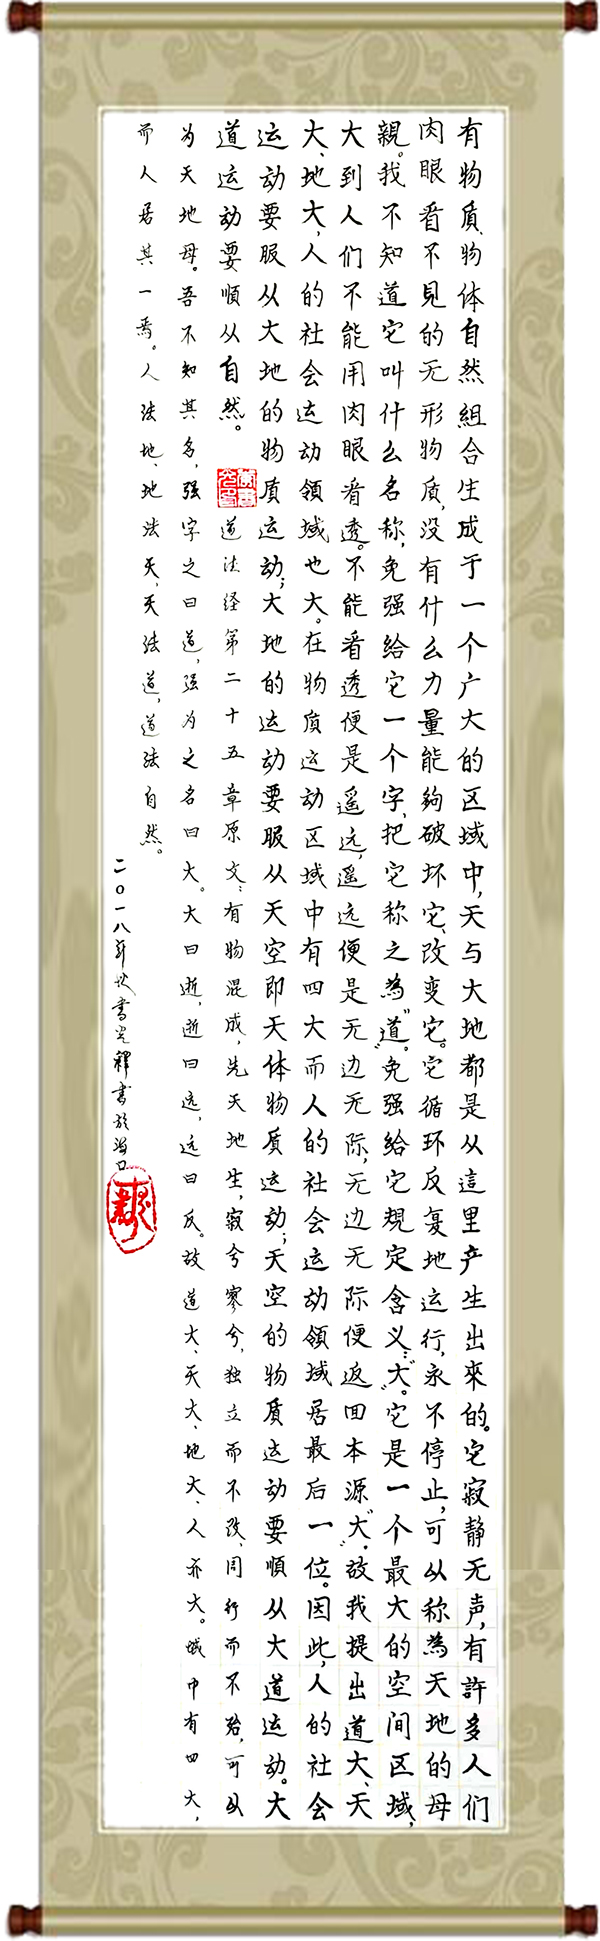 有物质、物体自然組合生成于一个广大的区域中,天与大地都是从這里产生出來的。它寂静无声,有許多人们
肉眼看不見的无形物质,没有什么力量能夠破坏它、改变它。它循环反复地运行,永不停止,可从称為天地的母
親。我不知道它叫什么名称,免强给它一个字,把它称之為"道"。免强给它規定含义:"大"。它是一个最大的空间区域,
大到人们不能用肉眼看透。不能看透便是遥远,遥远便是无边无际,无边无际便返回本源"大"。故我提出道大、天
大、地大,人的社会运动領域也大。在物质运动区域中有四大而人的社会运动領域居最后一位。因此,人的社会
运动要服从大地的物质运动;大地的运动要服从天空即天体物质运动;天空的物质运动要順从大道运动。大
道运动要順从自然。道法经第二十五章原文:有物混成,先天地生,寂兮寥兮,独立而不改、周行而不殆,可以
为天地母。吾不知其名,强字之曰道,强为之名曰大。大曰逝,逝曰远,远曰反。故道大、天大、地大、人亦大。域中有四大,
而人居其一焉。人法地、地法天,天法道,道法自然。
二〇一八年書釋書於海口